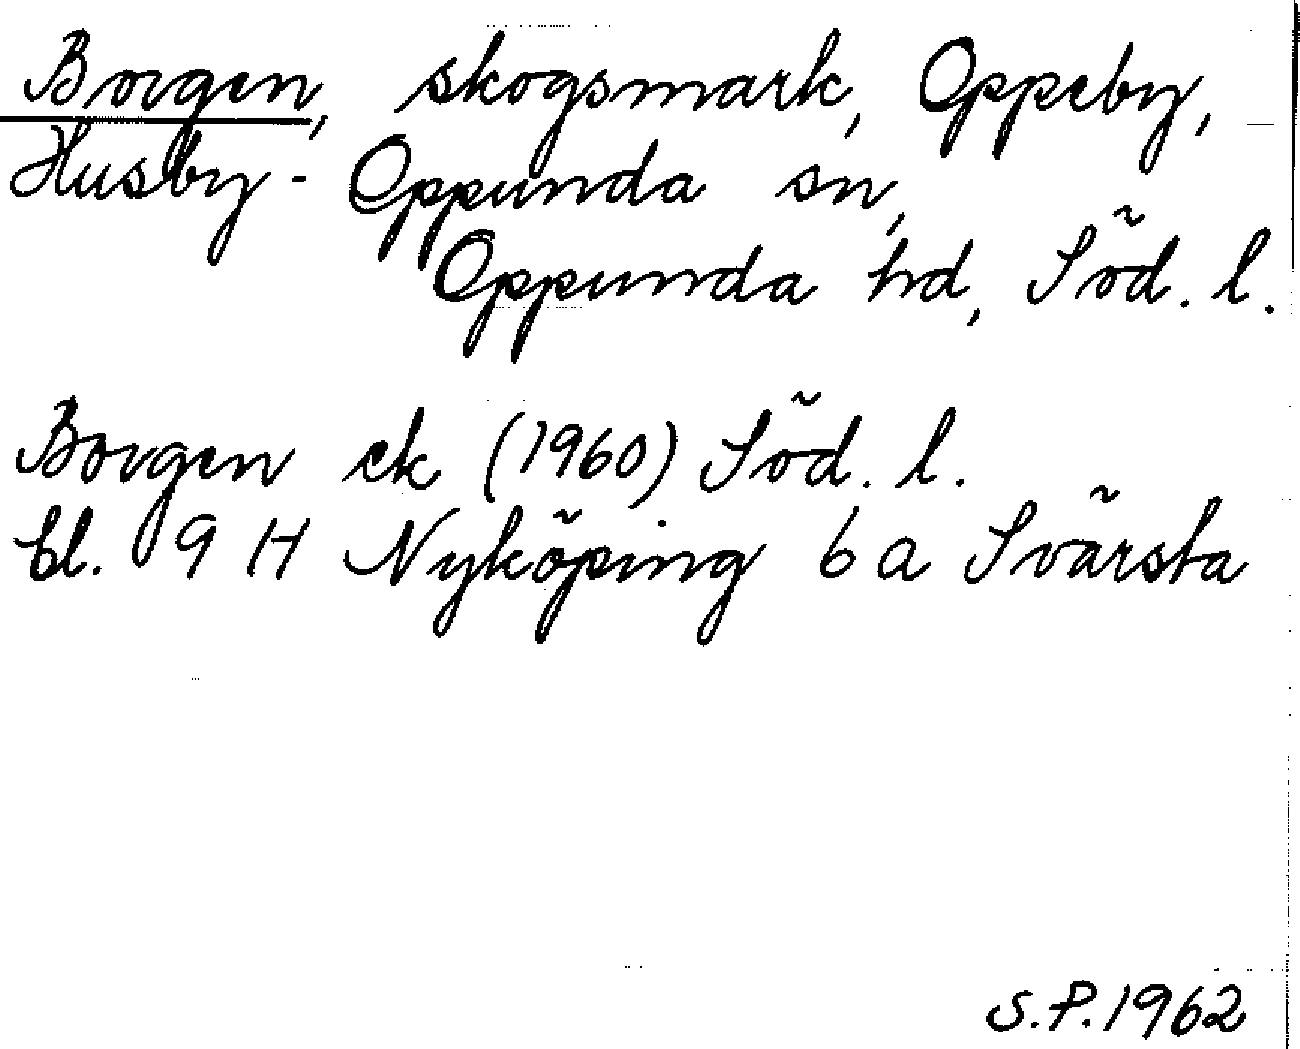 Borgen, skogsmark, Oppeby,
Husby-Oppunda sn,
Oppunda hd, Söd. l.
Borgen ek (1960) Söd. l.
bl. 9 H Nyköping 6 a Svärsta
S.P. 1962